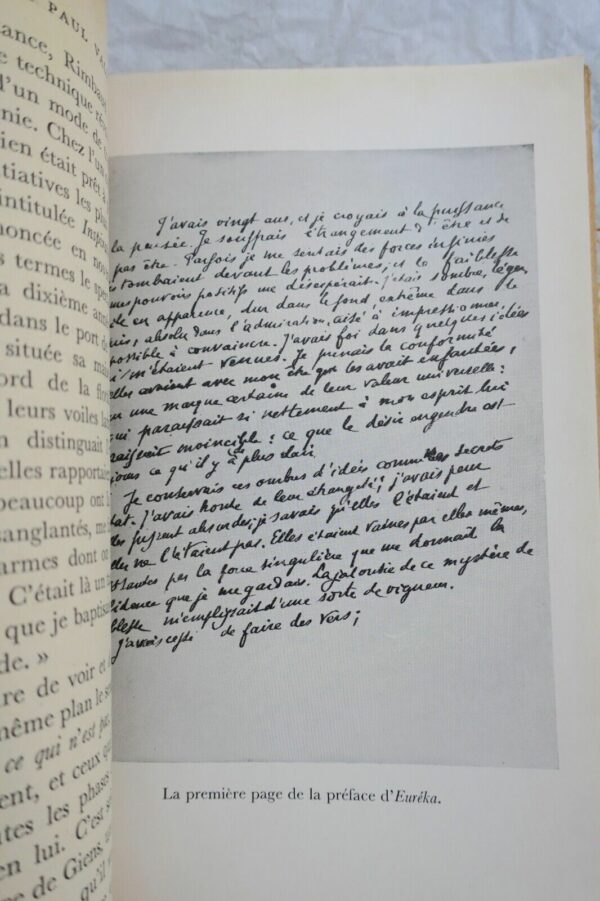 PAUL VA
ance, Rimbau
technique ré
d'un mode de
nie. Chez l'un
ien était prêt à
itiatives les plu
intitulée Inspi
noncée en nou
s termes le spe
a dixième ann
dans le port d
située sa ma
ord de la flo
leurs voiles la
n distinguait
elles rapportaie
beaucoup ont l
sanglantés, me
armes dont ce
C'était là un
que je baptisa
de. »
re de voir et
même plan le s
ce qui n'est pas
ent, et ceux qu
tes les phases
en lui. C'est s
e de Giens,
qu'il
J'avais vingt ans, et je croyais à la puissance
la pensée. Je souffrais étrangement d'être et de
pas être. Parfois je me sentais des forces infinies
s tombaient devant les problèmes; et la faiblesse
mes pouvoirs positifs me désespérait. J'étais sombre, léger,
ile en apparence, dur dans le fond, extrême dans le
pris, absolu dans l'admiration, aisé à impressionner,
possible à convaincre. J'avais foi dans quelques idées
i m'étaient venues. Je prenais la conformité
elles avaient avec mon être qui les avait enfantées,
ur une marque certaine de leur valeur universelle:
qui paraissait si nettement à mon esprit lui
raissait invincible: ce que le désir engendre est
jours ce qu'il y a de plus clair.
Je conservais ces ombres d'idées comme les secrets
tat. J'avais honte de leur étrangeté; j'avais peur
les fussent absurdes; je savais qu'elles l'étaient et
elles ne l'étaient pas. Elles étaient vaines par elles-mêmes,
ssantes par la force singulière que me donnait la
fidence que je me gardais. La jalousie de ce mystère de
blesse m'emplissait d'une sorte de vigueur.
J'avais cessé de faire des vers;
La première page de la préface d'Eurêka.